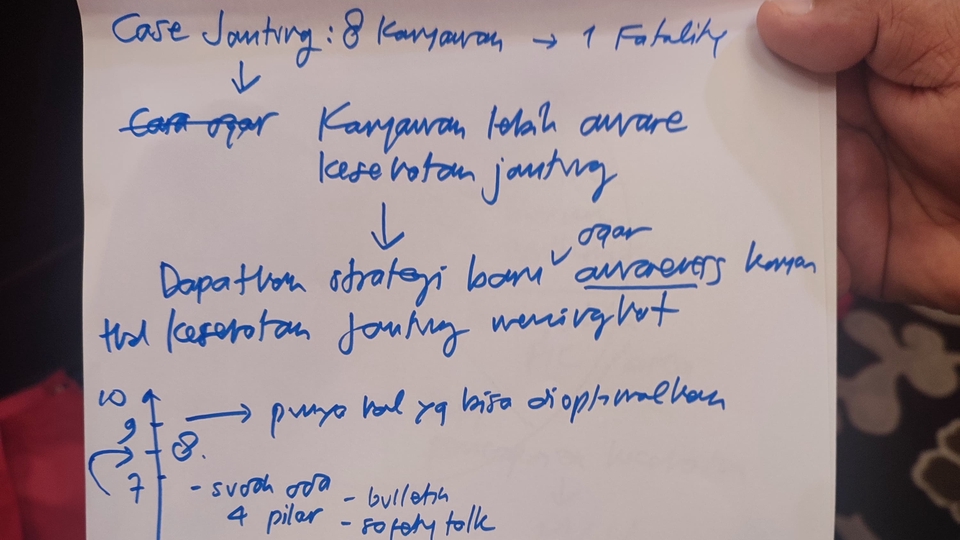 Case Jantung : 8 Karyawan → 1 Fatality
↓
Cara agar Karyawan lebih aware
kesehatan jantung
↓
agar
Dapatkan strategi baru ✓ awareness karyan
thd kesehatan Jantung meningkat
10
9 → punya hal yg bisa dioptimalkan
8.
7 - sudah ada - bulletin
4 pilar - safety talk